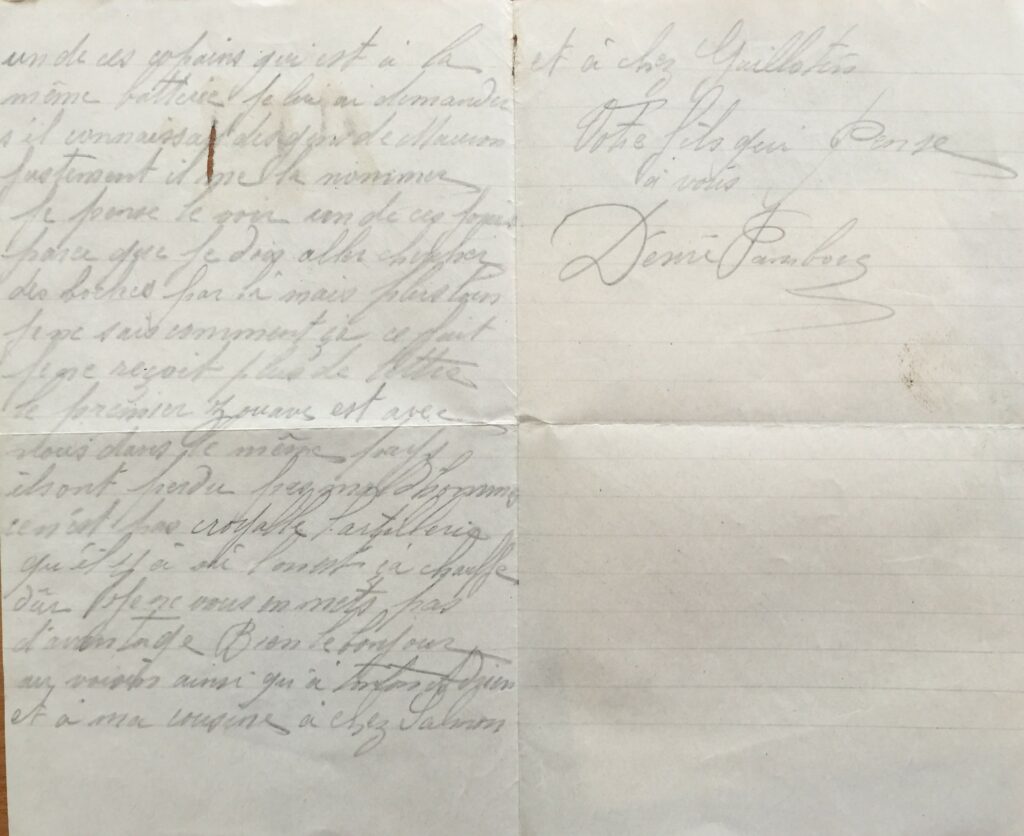 un de ces copains qui est à la
même batterie je lui ai demander
s il connaissait des gens de Mauron
justement il me la nommer
Je pense le voir un de ces jours
parce que je dois aller chercher
des boches par là mais plus loin
je ne sais comment ça ce fait
je ne reçoit plus de lettre
le premier Zouave est avec
nous dans le même pays
ils ont perdu pas mal d'hommes
ce n'est pas croyable l'artillerie
qu'il y à où l'on est ça chauffe
dûr Je ne vous en mets pas
d'avantage Bien le bonjour
aux voisins ainsi qu'à
et à ma cousine à chez Salmon
et à chez Guillotin
Votre fils qui Pense
à vous